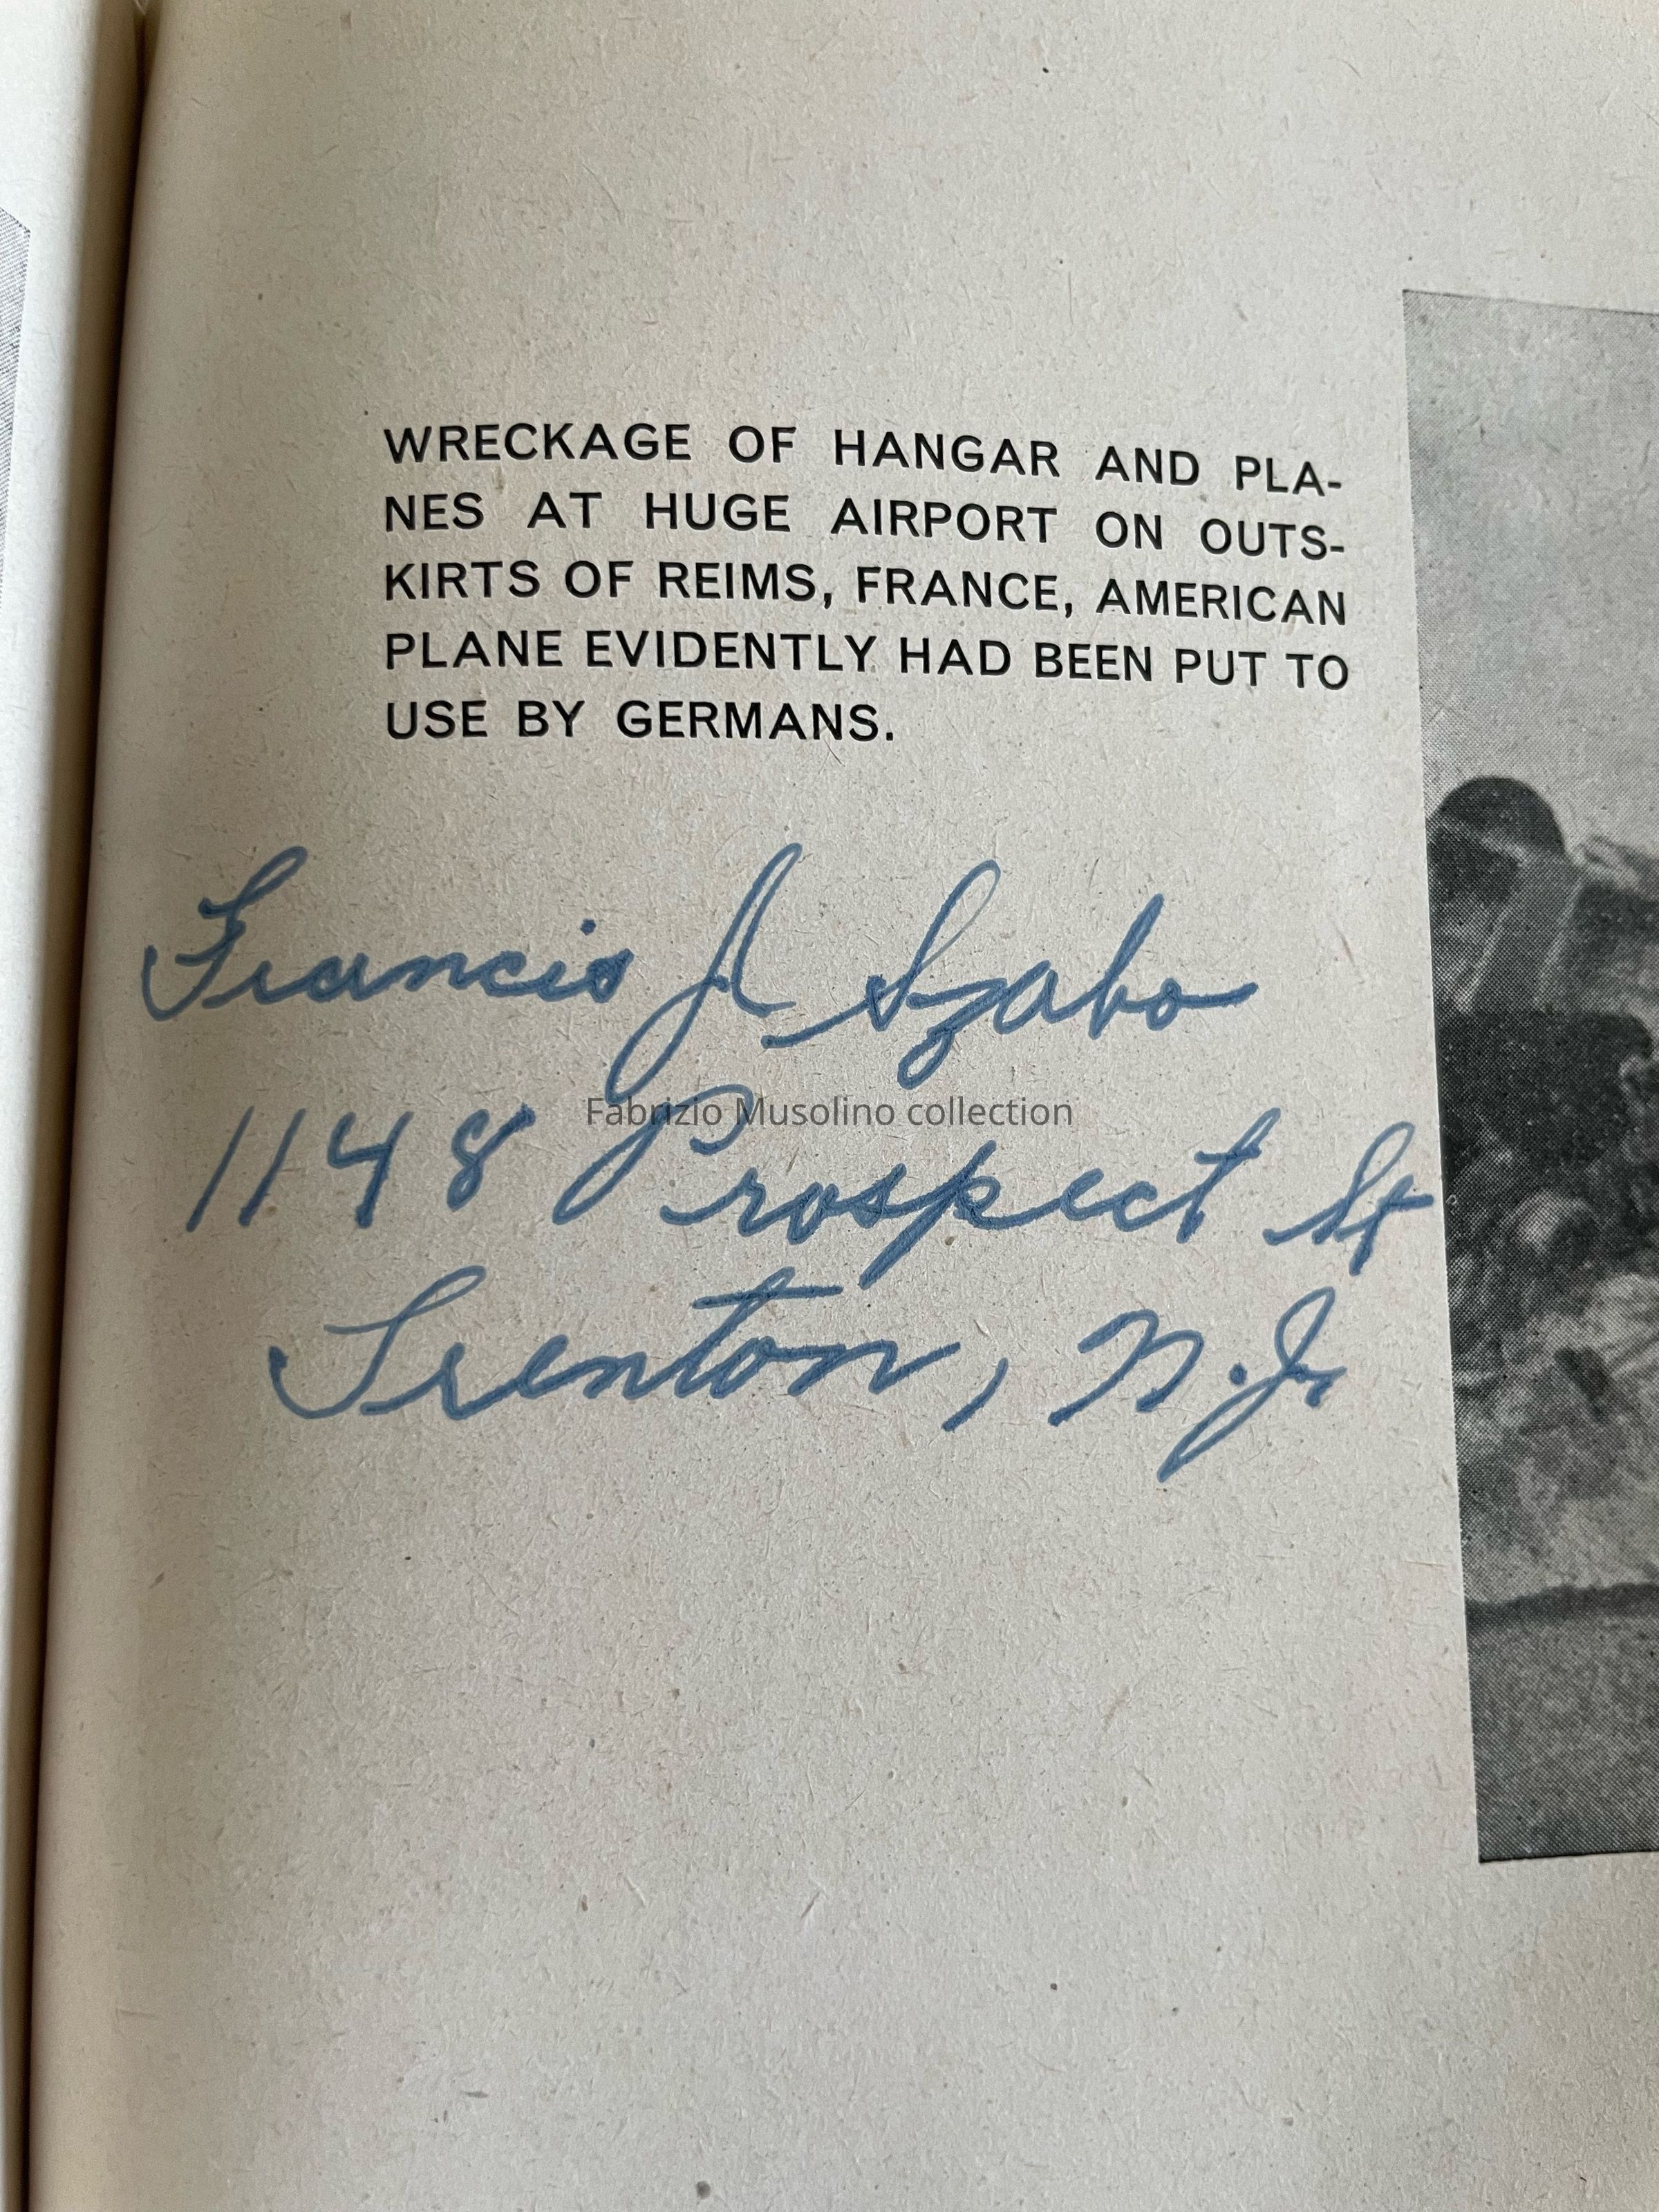 WRECKAGE OF HANGAR AND PLA-
NES AT HUGE AIRPORT ON OUTS-
KIRTS OF REIMS, FRANCE, AMERICAN
PLANE EVIDENTLY HAD BEEN PUT TO
USE BY GERMANS.
Francis J. Szabo
Fabrizio Musolino collection
1148 Prospect St
Trenton, N.J.